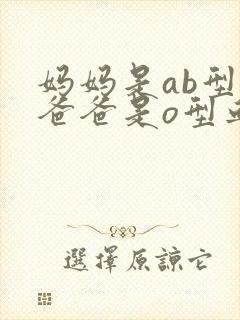 妈妈是ab型
爸爸是o型血
選擇原諒它